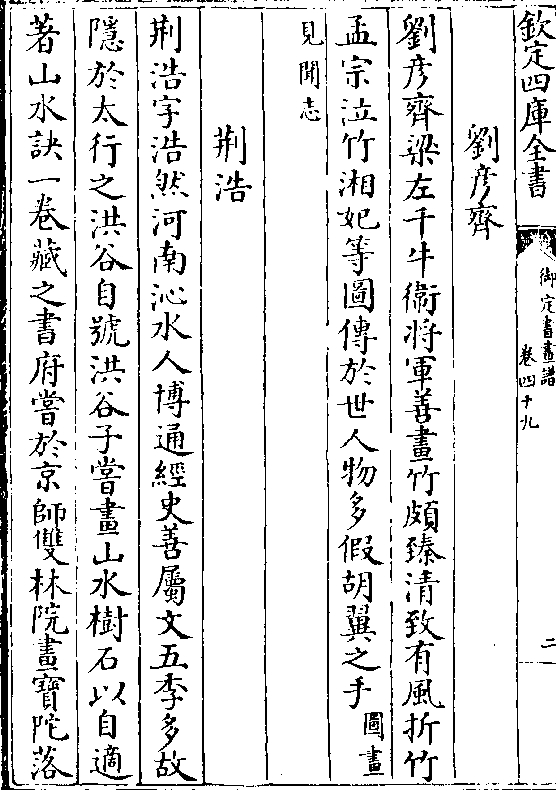 欽定四庫全書
御定書畫譜
卷四十九
二
劉彦齊
劉彦齊梁左千牛衛将軍善畫竹頗臻清致有風折竹
孟宗泣竹湘妃等圖傳於世人物多假胡翼之手圖畫
見聞志
荆浩
荆浩字浩然河南沁水人博通經史善屬文五季多故
隱於太行之洪谷自號洪谷子嘗畫山水樹石以自適
著山水訣一卷藏之書府嘗於京師雙林院畫寶陀落